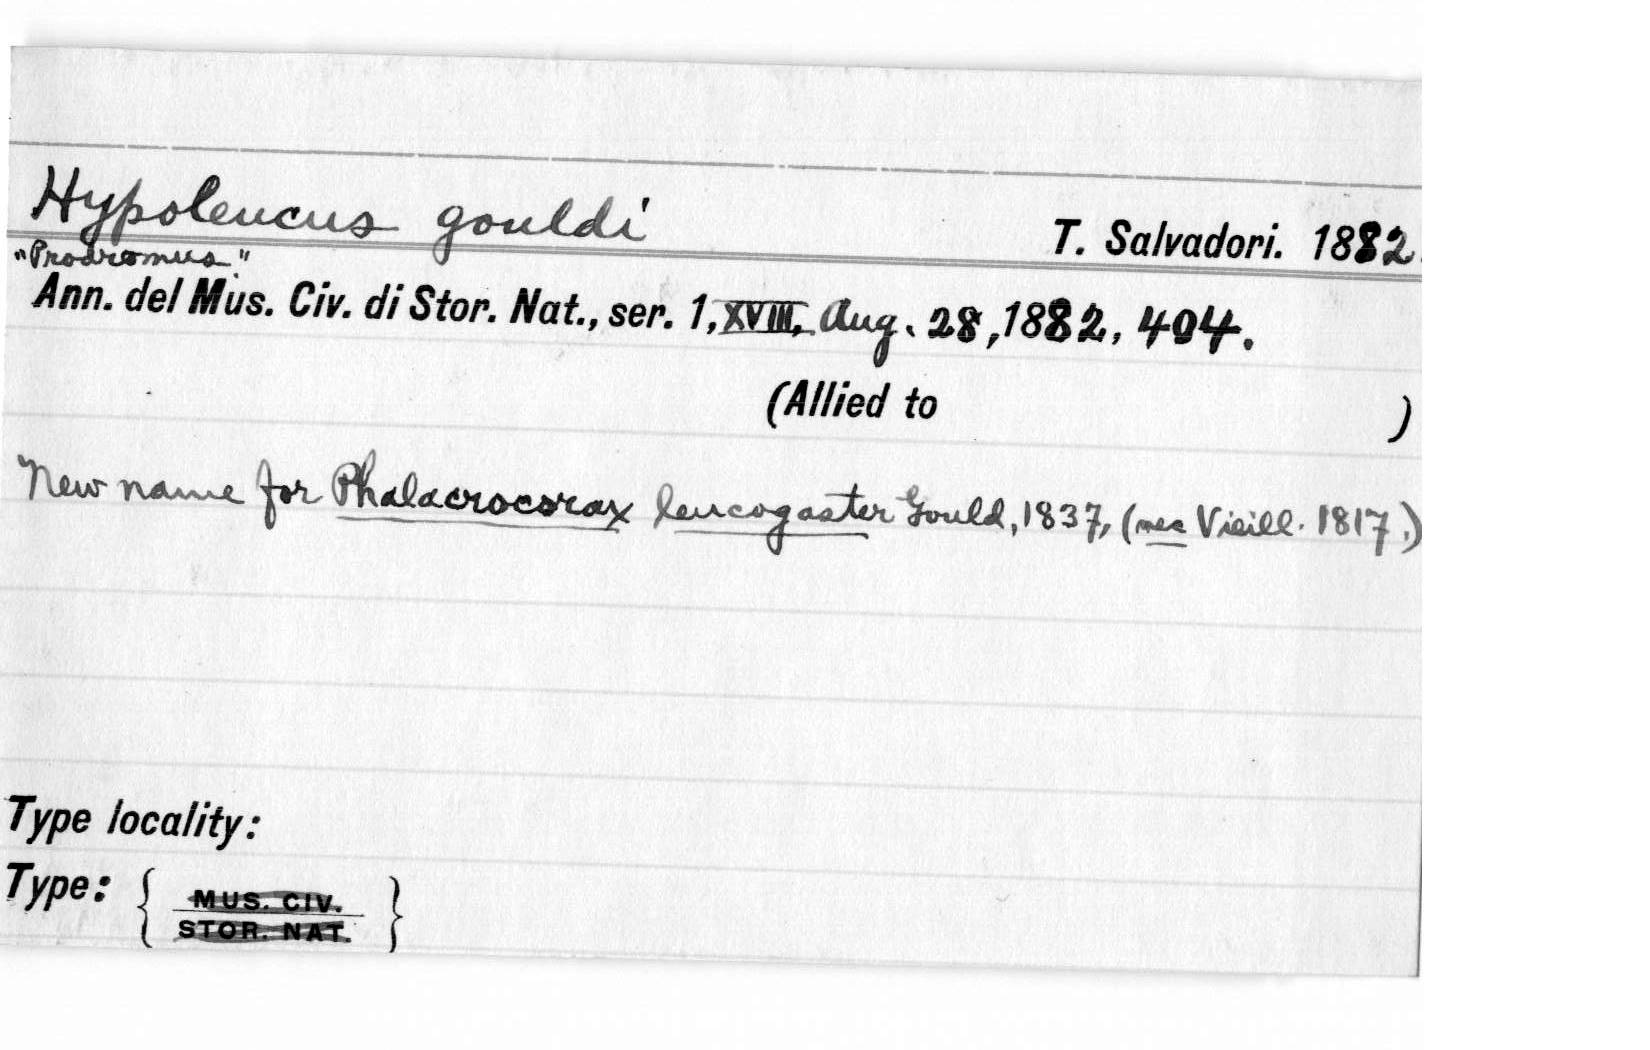 Hypoleucus gouldi T. Salvadori. 1882.
"Prodromus"
Ann. del Mus. Civ. di Stor. Nat., ser. 1, XVIII, Aug. 28, 1882, 404.
(Allied to )
New name for Phalacrocorax leucogaster Gould, 1837, (nec Vieill. 1817.)
Type locality:
Type: { MUS. CIV.
STOR. NAT. }